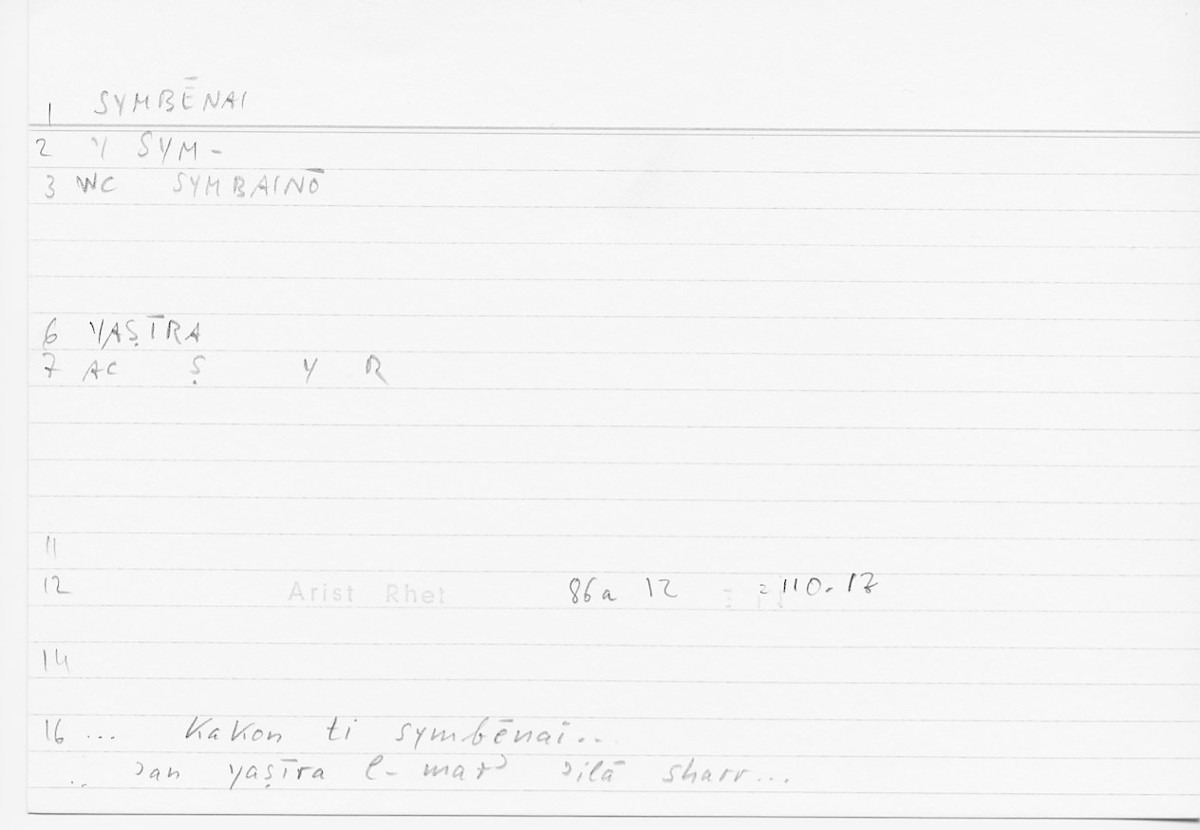 1 SYMBĒNAI
2 Y SYM -
3 WC SYMBAINŌ
6 YAṢĪRA
7 AC Ṣ Y R
11
12 Arist Rhet 86a 12 = 110.17
14
16 ... Kakon ti symbēnai..
.. ʾan yaṣīra l- marʾ ʾilā sharr...